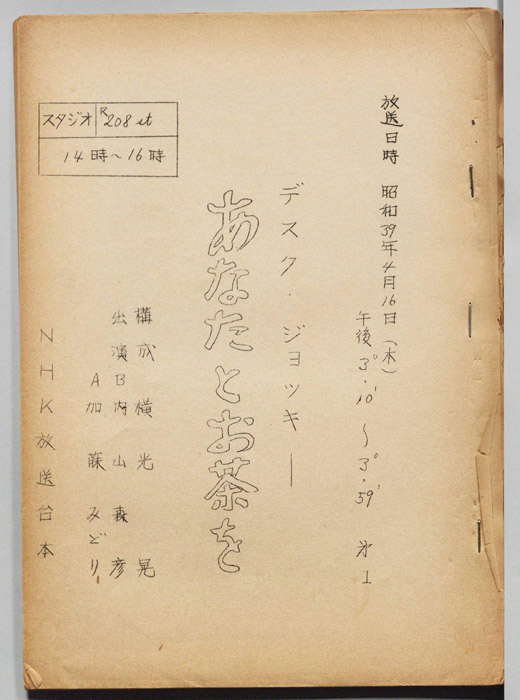 放送日時 昭和39年4月16日(木)
午後3°·10′~3°·59′ 第1
デスク・ジョッキー
あなたとお茶を
構成 横光 晃
出演B 内山森彦
A 加藤みどり
NHK放送台本
スタジオ R208st
14時~16時